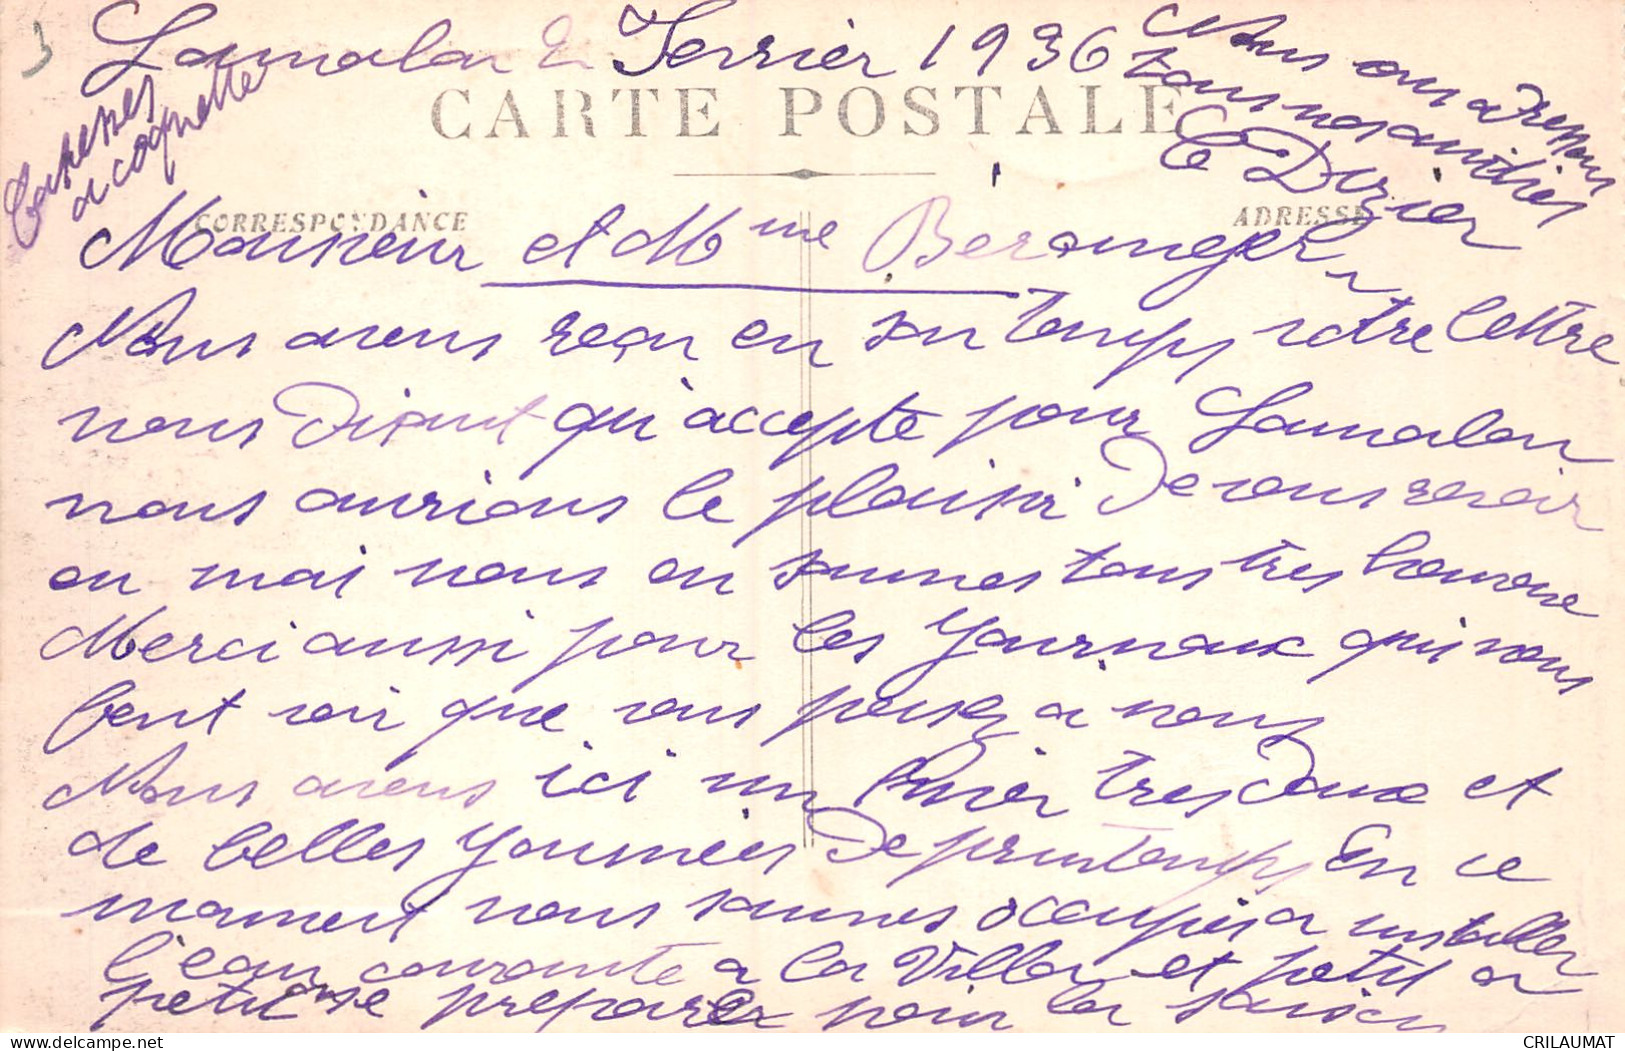 Lamalou 2 Fevrier 1936
CARTE POSTALE
CORRESPONDANCE
ADRESSE
Monsieur et Mme Beranger
Nous avons reçu en son temps votre lettre
nous disant qu'accepte pour Lamalou
nous aurions le plaisir de vous revoir
en mai nous en sommes tous tres heureux
Merci aussi pour les Journaux qui nous
font voir que vous pensez a nous
Nous avons ici un hiver tres doux et
de belles Journées de printemps En ce
moment nous sommes occupés a installer
l'eau courante a la Villa et petit a
petit se preparer pour la saison
Nous vous adressons
tous nos amitiés
E Dozier
Caresses
a coquette
CRILAUMAT